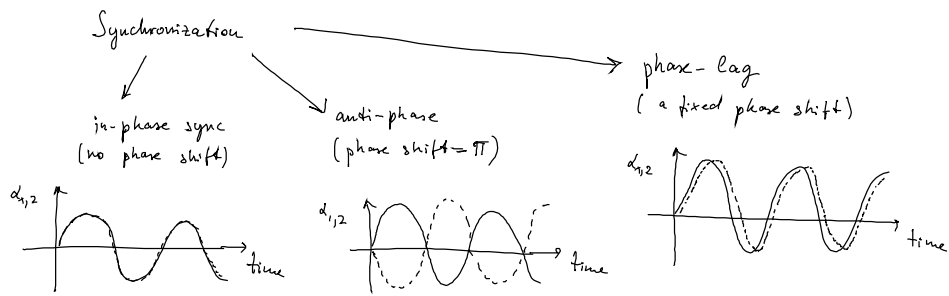 Synchronization
in-phase sync
(no phase shift)
α1,2
time
anti-phase
(phase shift = π)
α1,2
time
phase-lag
(a fixed phase shift)
α1,2
time